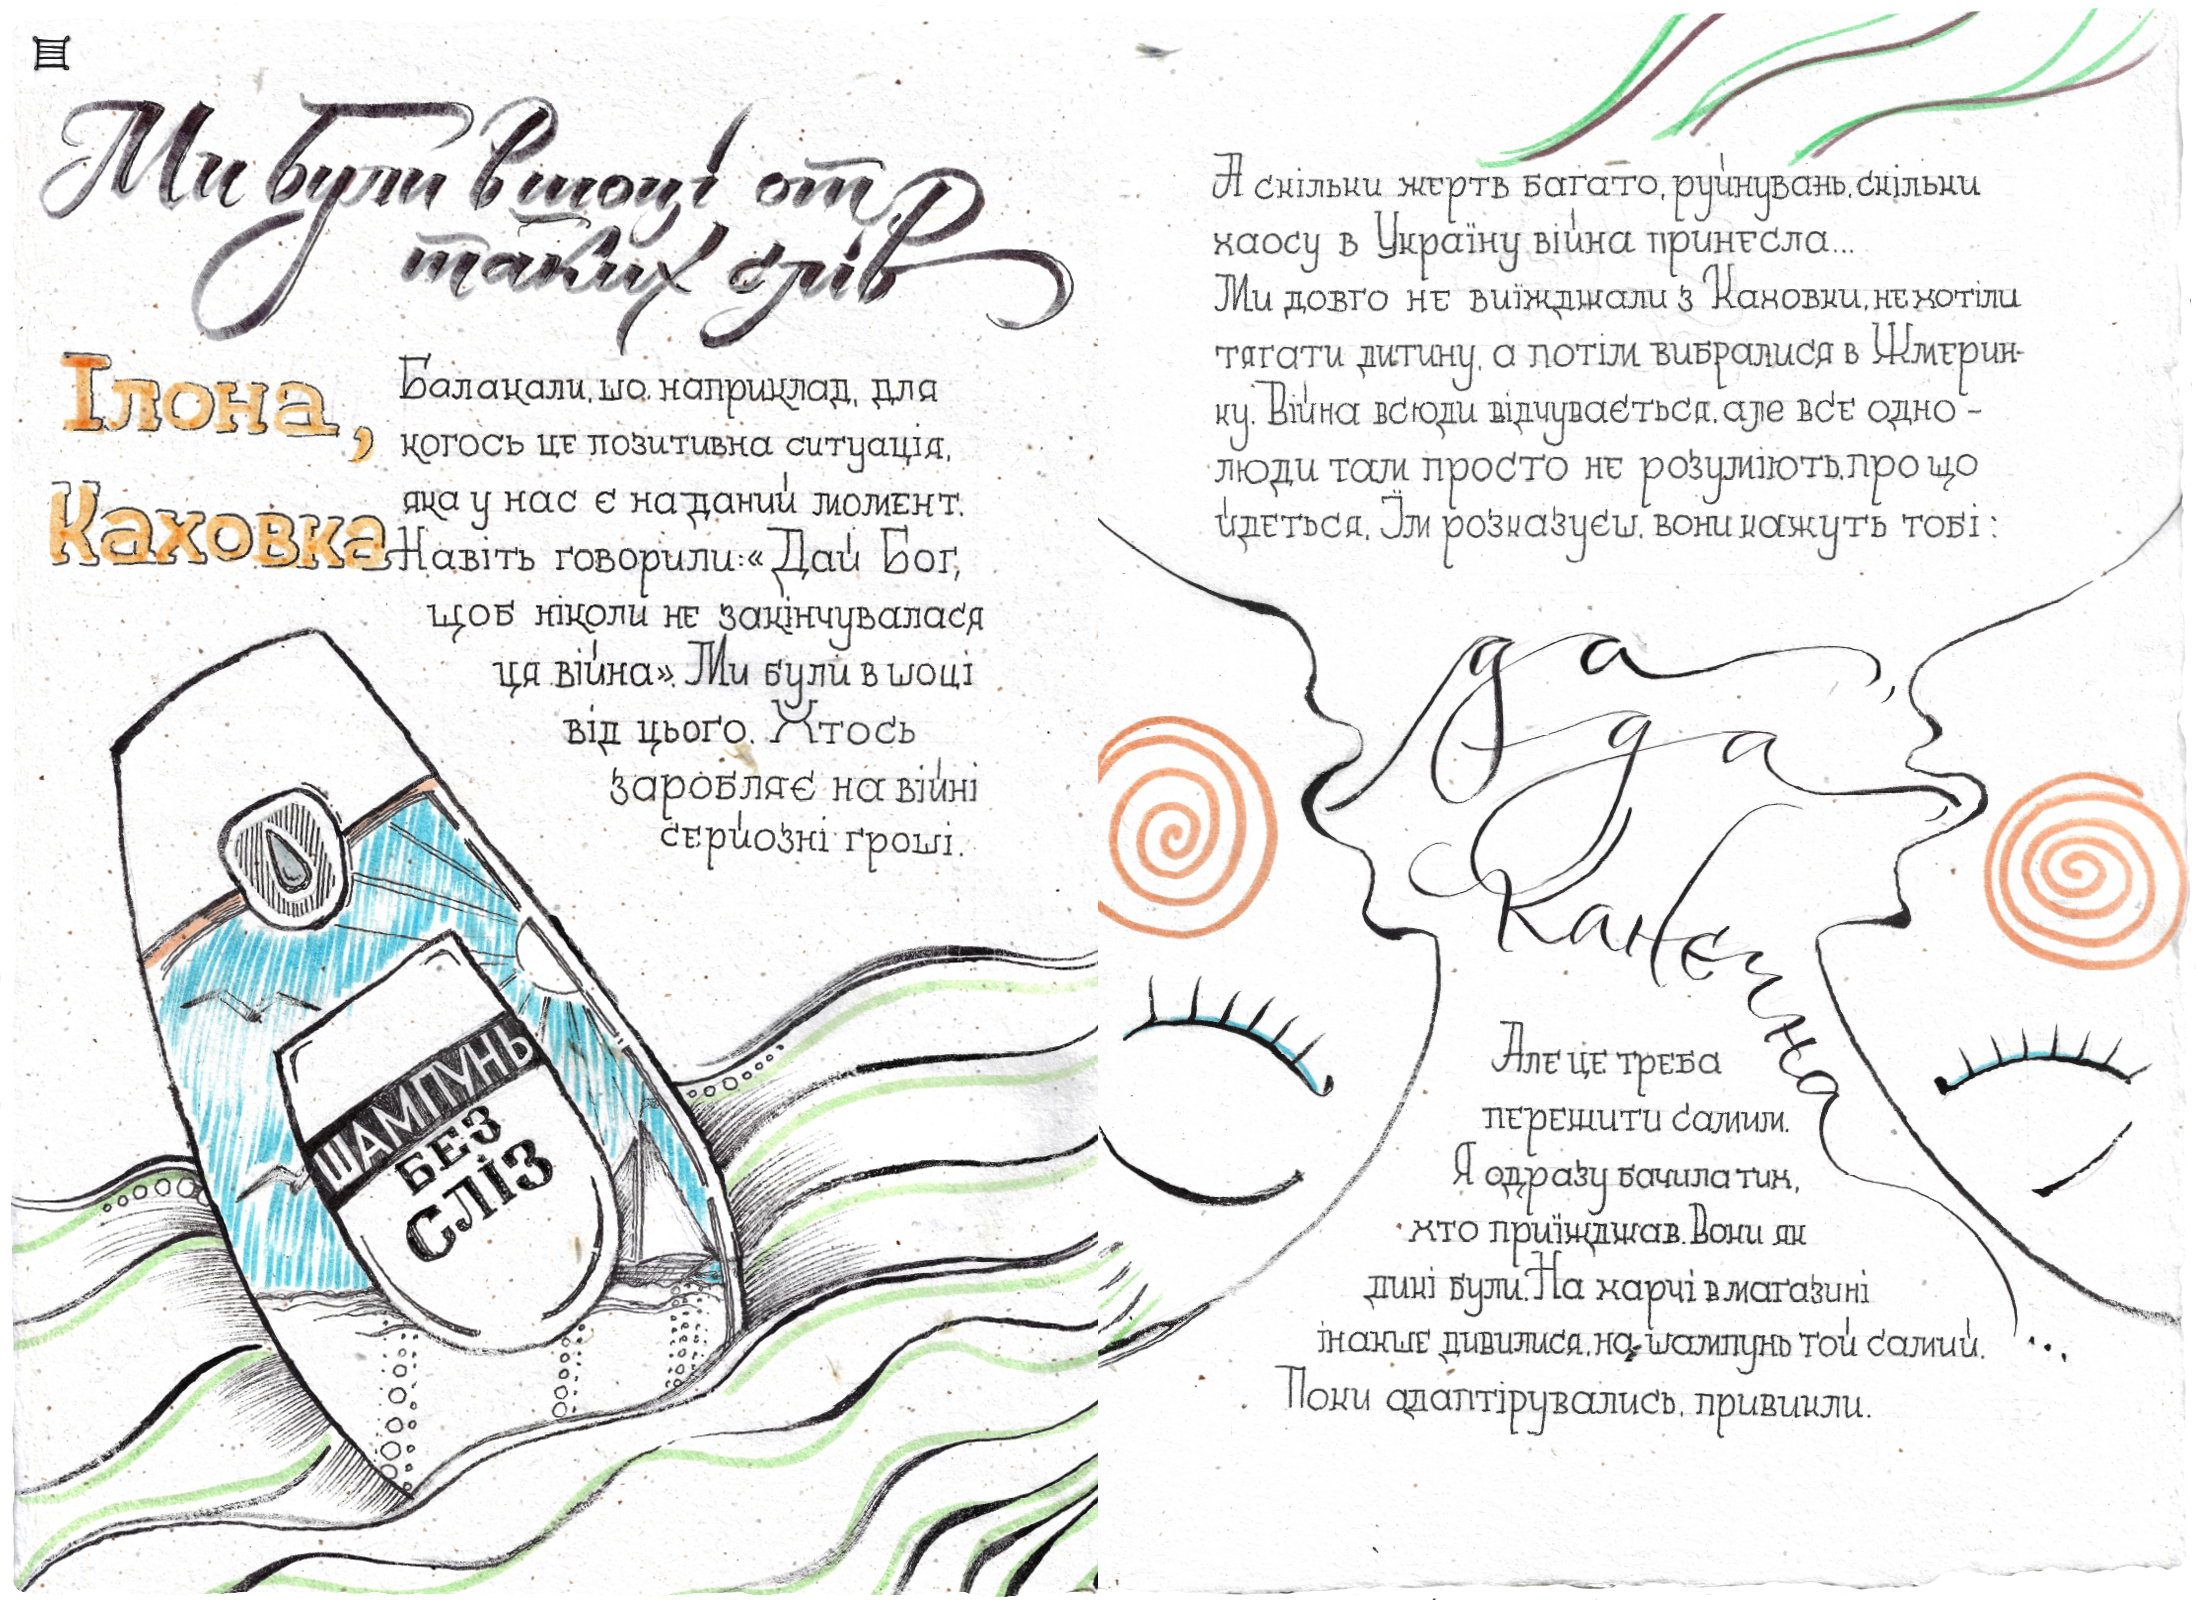 Ми були в шоці от
таких слів
Ілона,
Каховка
Балакали, шо, наприклад, для
когось це позитивна ситуація,
яка у нас є на даний момент.
Навіть говорили: «Дай Бог,
щоб ніколи не закінчувалася
ця війна». Ми були в шоці
від цього. Хтось
заробляє на війні
серйозні гроші.
ШАМПУНЬ
БЕЗ
СЛІЗ
А скільки жертв багато, руйнувань, скільки
хаосу в Україну війна принесла...
Ми довго не виїжджали з Каховки, не хотіли
тягати дитину, а потім вибралися в Жмерин-
ку. Війна всюди відчувається, але всє одно -
люди там просто не розуміють, про що
йдеться. Їм розказуєш, вони кажуть тобі:
да
да
канєчна
...
Але це треба
пережити самим.
Я одразу бачила тих,
хто приїжджав. Вони як
дикі були. На харчі в магазині
інакше дивилися, на шампунь той самий.
Поки адаптірувались, привикли.